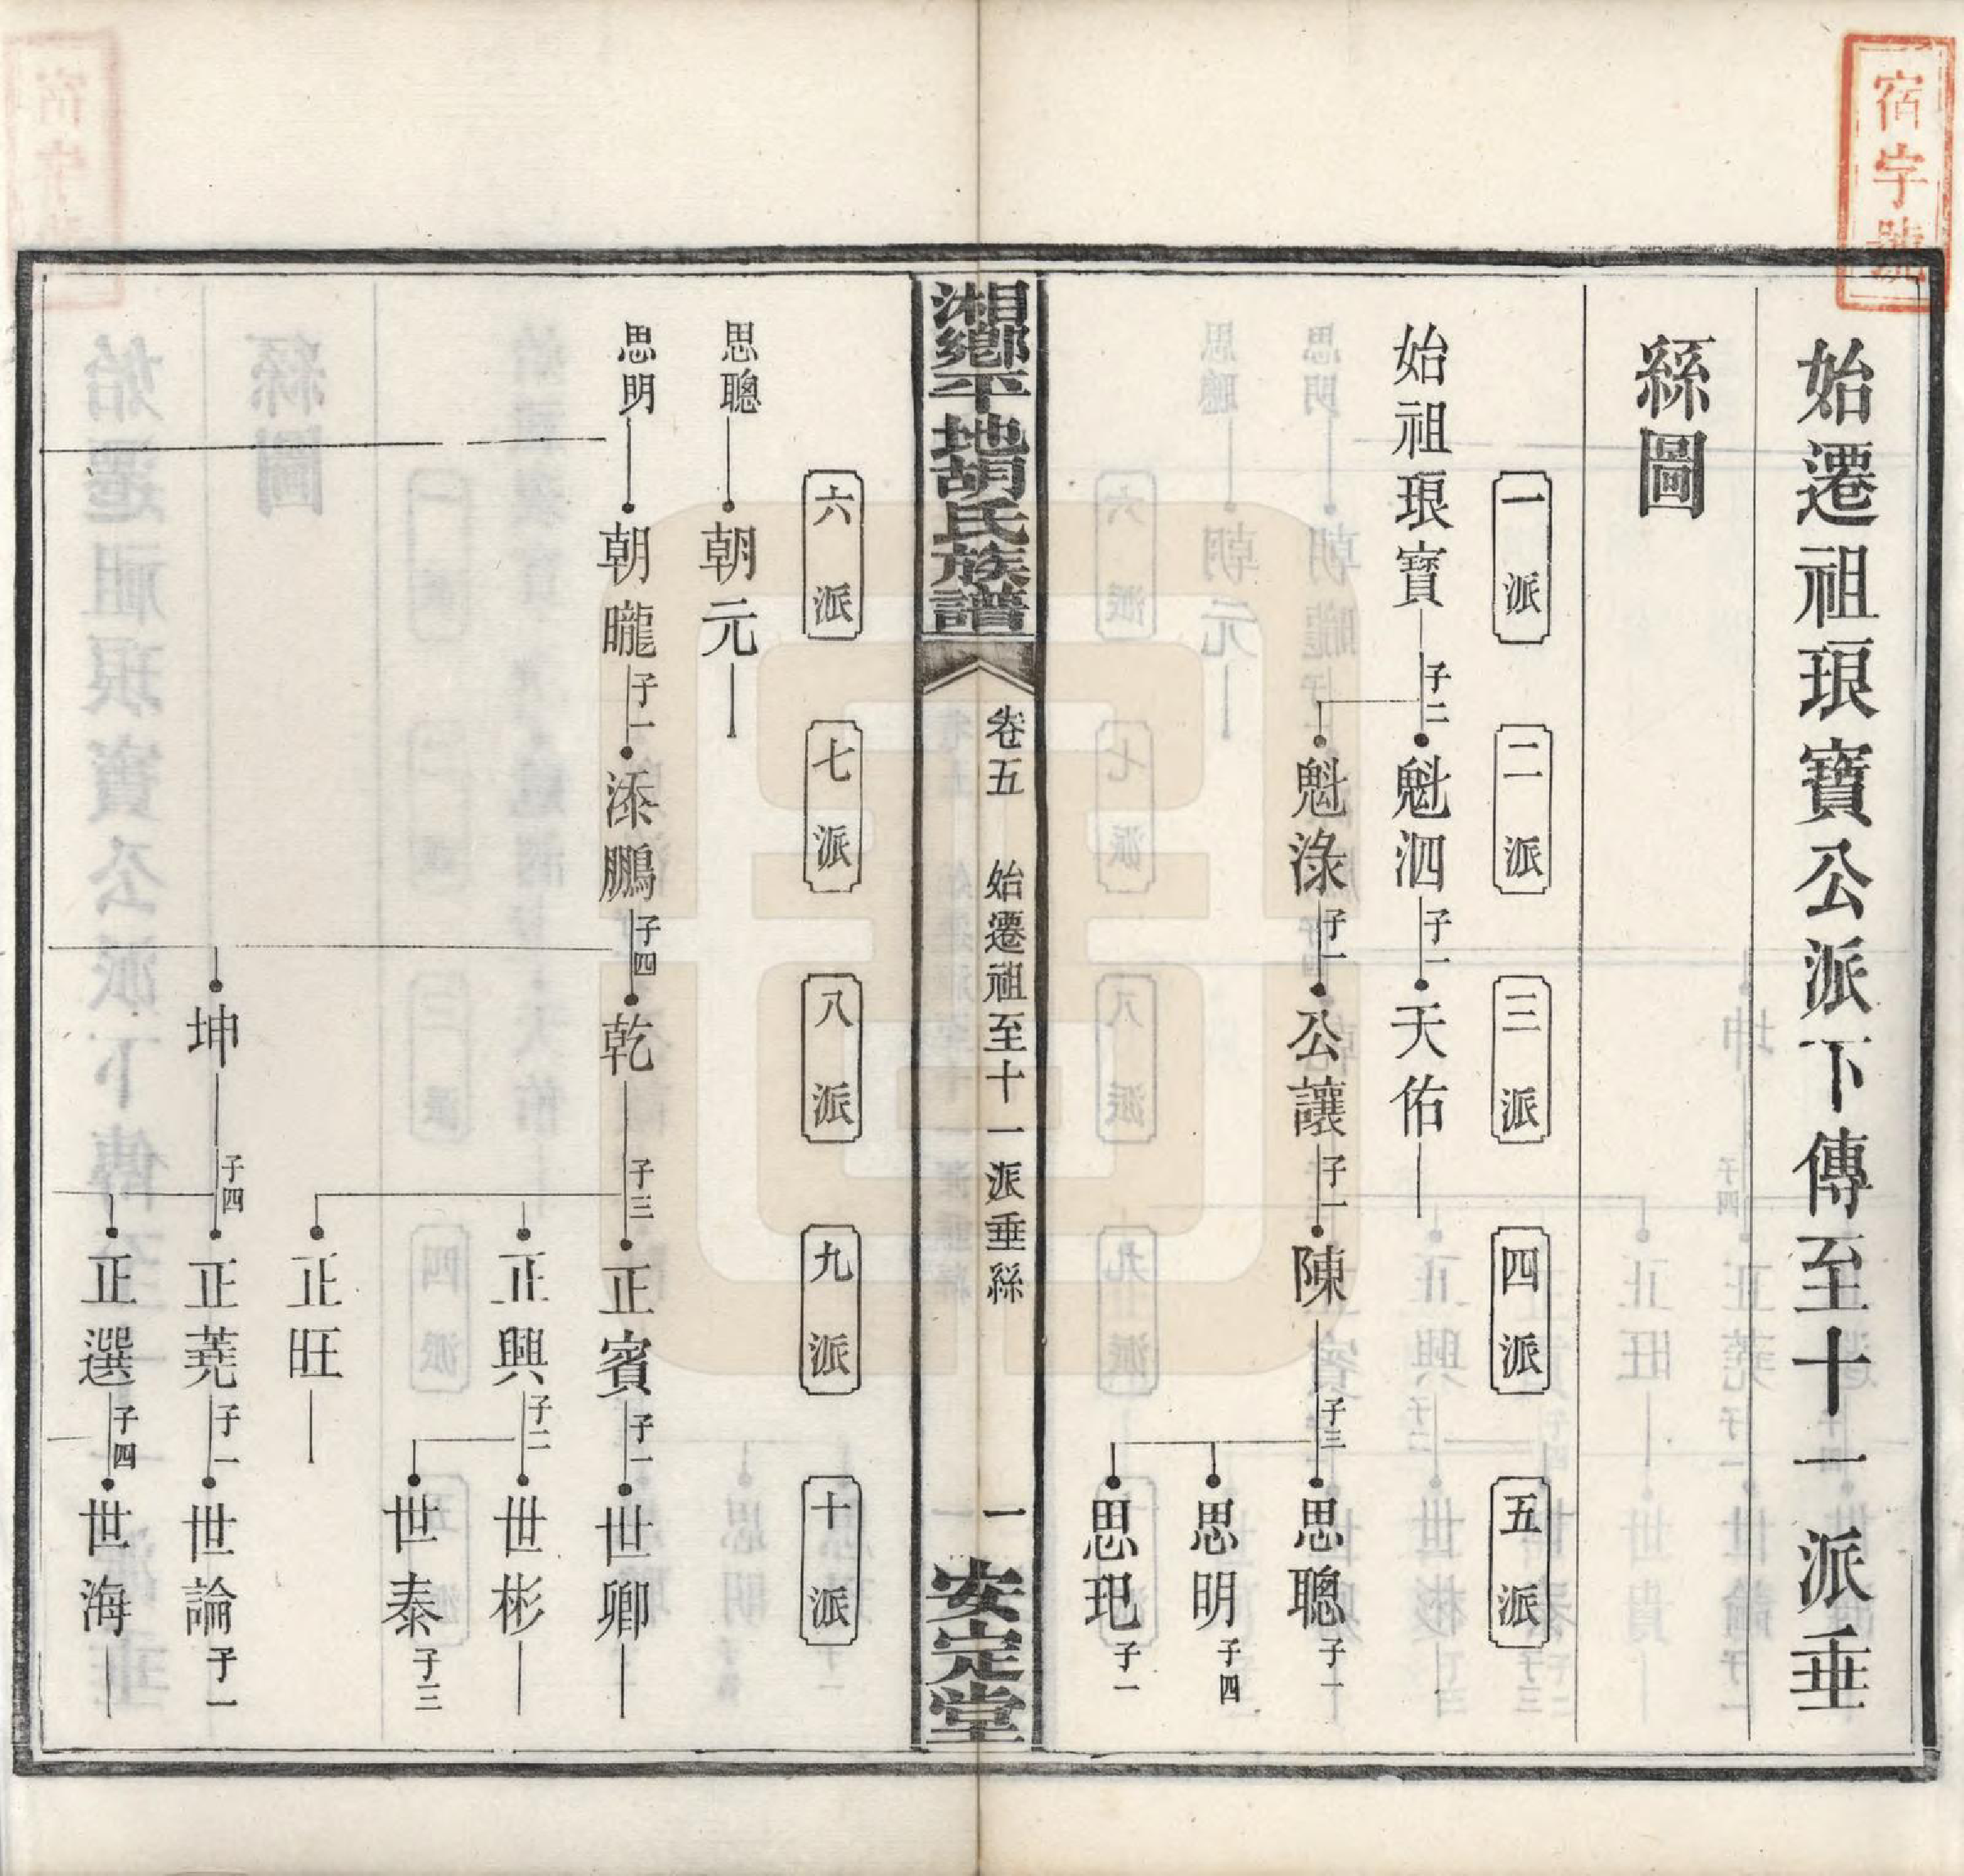 宿字號
始遷祖琅寶公派下傳至十一派垂
絲圖
一派 二派 三派 四派 五派
始祖琅寶 子二 魁泗 子一 天佑
魁淥 子一 公讓 子一 陳 子三 思聰 子一
思明 子四
思玘 子一
湘鄉平地胡氏族譜 卷五 始遷祖至十一派垂絲 一 安定堂
六派 七派 八派 九派 十派
思聰 朝元
思明 朝曨 子一 添鵬 子四 乾 子三 正賓 子一 世卿
正興 子二 世彬
世泰 子三
正旺
坤 子四 正蕘 子一 世論 子一
正選 子四 世海